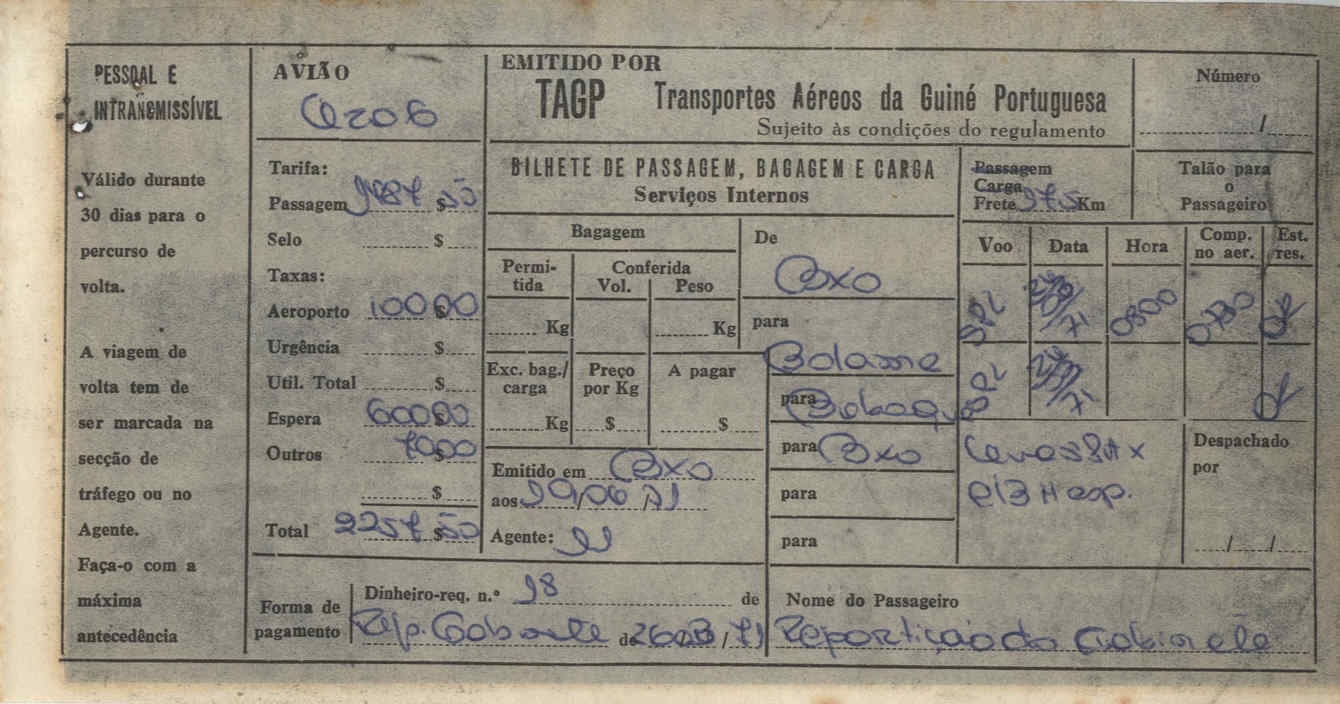 PESSOAL E
INTRANSMISSÍVEL
Válido durante
30 dias para o
percurso de
volta.
A viagem de
volta tem de
ser marcada na
secção de
tráfego ou no
Agente.
Faça-o com a
máxima
antecedência
AVIÃO
Tarifa:
Passagem $50
Selo $
Taxas:
Aeroporto 100$00
Urgência $
Util. Total $
Espera 600$00
Outros 70$00
$
Total $50
EMITIDO POR
TAGP Transportes Aéreos da Guiné Portuguesa
Sujeito às condições do regulamento
Número
/
BILHETE DE PASSAGEM, BAGAGEM E CARGA
Serviços Internos
Passagem
Carga
Frete 375 Km
Talão para
o
Passageiro
Bagagem
Permi-
tida
Conferida
Vol. Peso
Kg Kg
Exc. bag./
carga
Preço
por Kg
A pagar
Kg $ $
Emitido em Bxo
aos
Agente:
De
Bxo
para
Bolama
para
para Bxo
para
para
Voo Data Hora Comp.
no aer. Est.
res.
SPL 0800 0730 OK
SPL OK
Despachado
por
/ /
Forma de
pagamento
Dinheiro-req. n.º 18 de
Rep. Gabinete de
Nome do Passageiro
Repartição do Gabinete